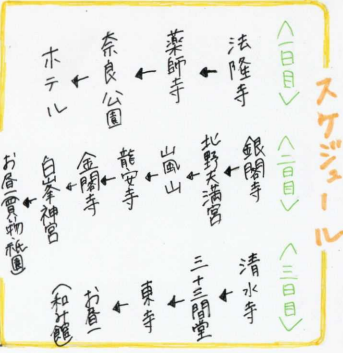 スケジュール
<一日目>
法隆寺
← 薬師寺
← 奈良公園
← ホテル
<二日目>
銀閣寺
← 北野天満宮
← 嵐山
← 龍安寺
← 金閣寺
← 白峯神宮
お昼買物祇園
<三日目>
清水寺
← 三十三間堂
← 東寺
← お昼
(和み館)